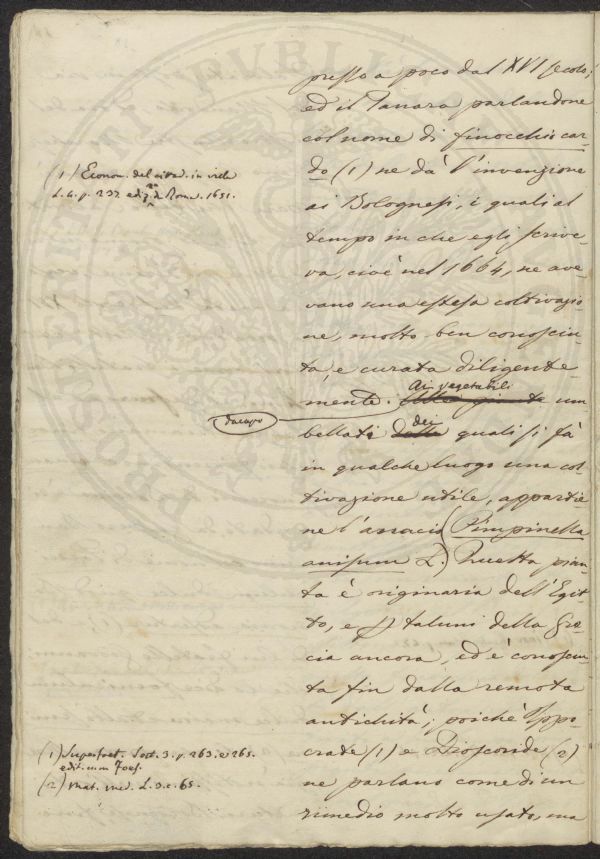 presso a poco dal XVI secolo;
ed il Tanara parlandone
col nome di finocchio car-
do (1) ne dà l'invenzione
ai Bolognesi, i quali al
tempo in che egli scrive-
va, cioè nel 1664, ne ave-
vano una estesa coltivazio-
ne, molto ben conosciu-
ta, e curata diligente-
mente. Ai vegetabili um-
bellati dei quali si fà
in qualche luogo una col-
tivazione utile, appartie-
ne l'annacio (Pimpinella
anisum L.) Questa pian-
ta è originaria dell'Egit-
to, e taluni della Gre-
cia ancora, ed è conosciu-
ta fin dalla remota
antichità; poichè Ippo-
crate (1) e Dioscoride (2)
ne parlano come di un
rimedio molto usato, ma
(1) Econom. del citad. in villa
L. 4. p. 237. ediz.ne di Roma. 1651.
dacapo
(1) Superfoet. Sect. 3. p. 263. e 265.
edit. Foes.
(2) Mat. med. L. 3. c. 65.
PROSPERITATI PUBLICAE